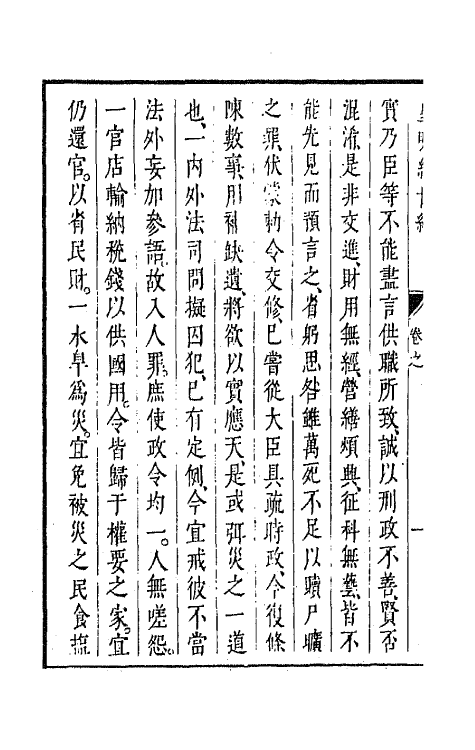 皇明經世編
卷之
一
實乃臣等不能盡言供職所致、誠以刑政不善、賢否
混淆、是非交進、財用無經、營繕頻典、征科無藝、皆不
能先見而預言之、省躬思咎、雖萬死不足以贖尸曠
之罪、伏蒙勅令交修、已嘗從大臣具疏時政、今復條
陳數事、用補缺遺、將欲以實應天、是或弭災之一道
也、一內外法司問擬囚犯、已有定例、今宜戒彼不當
法外妄加參語、故入人罪。庶使政令均一。人無嗟怨。
一官店輸納稅錢以供國用。今皆歸于權要之家。宜
仍還官。以省民財。一水旱為災。宜免被災之民食塩